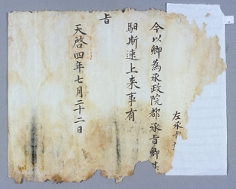 左承
今以卿為承政院都承旨卿其
馹斯速上來事有
旨
天啓四年七月二十二日